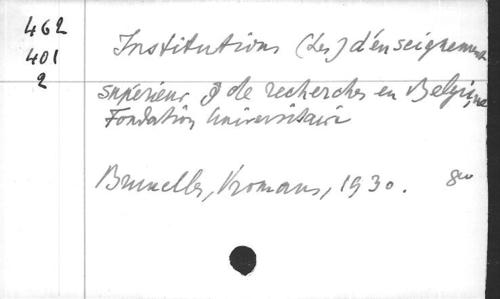 462
401
2
Institutions (Les) d'enseignement
supérieur & de recherches en Belgique
Fondation Universitaire
Bruxelles, Vromans, 1930. 8vo